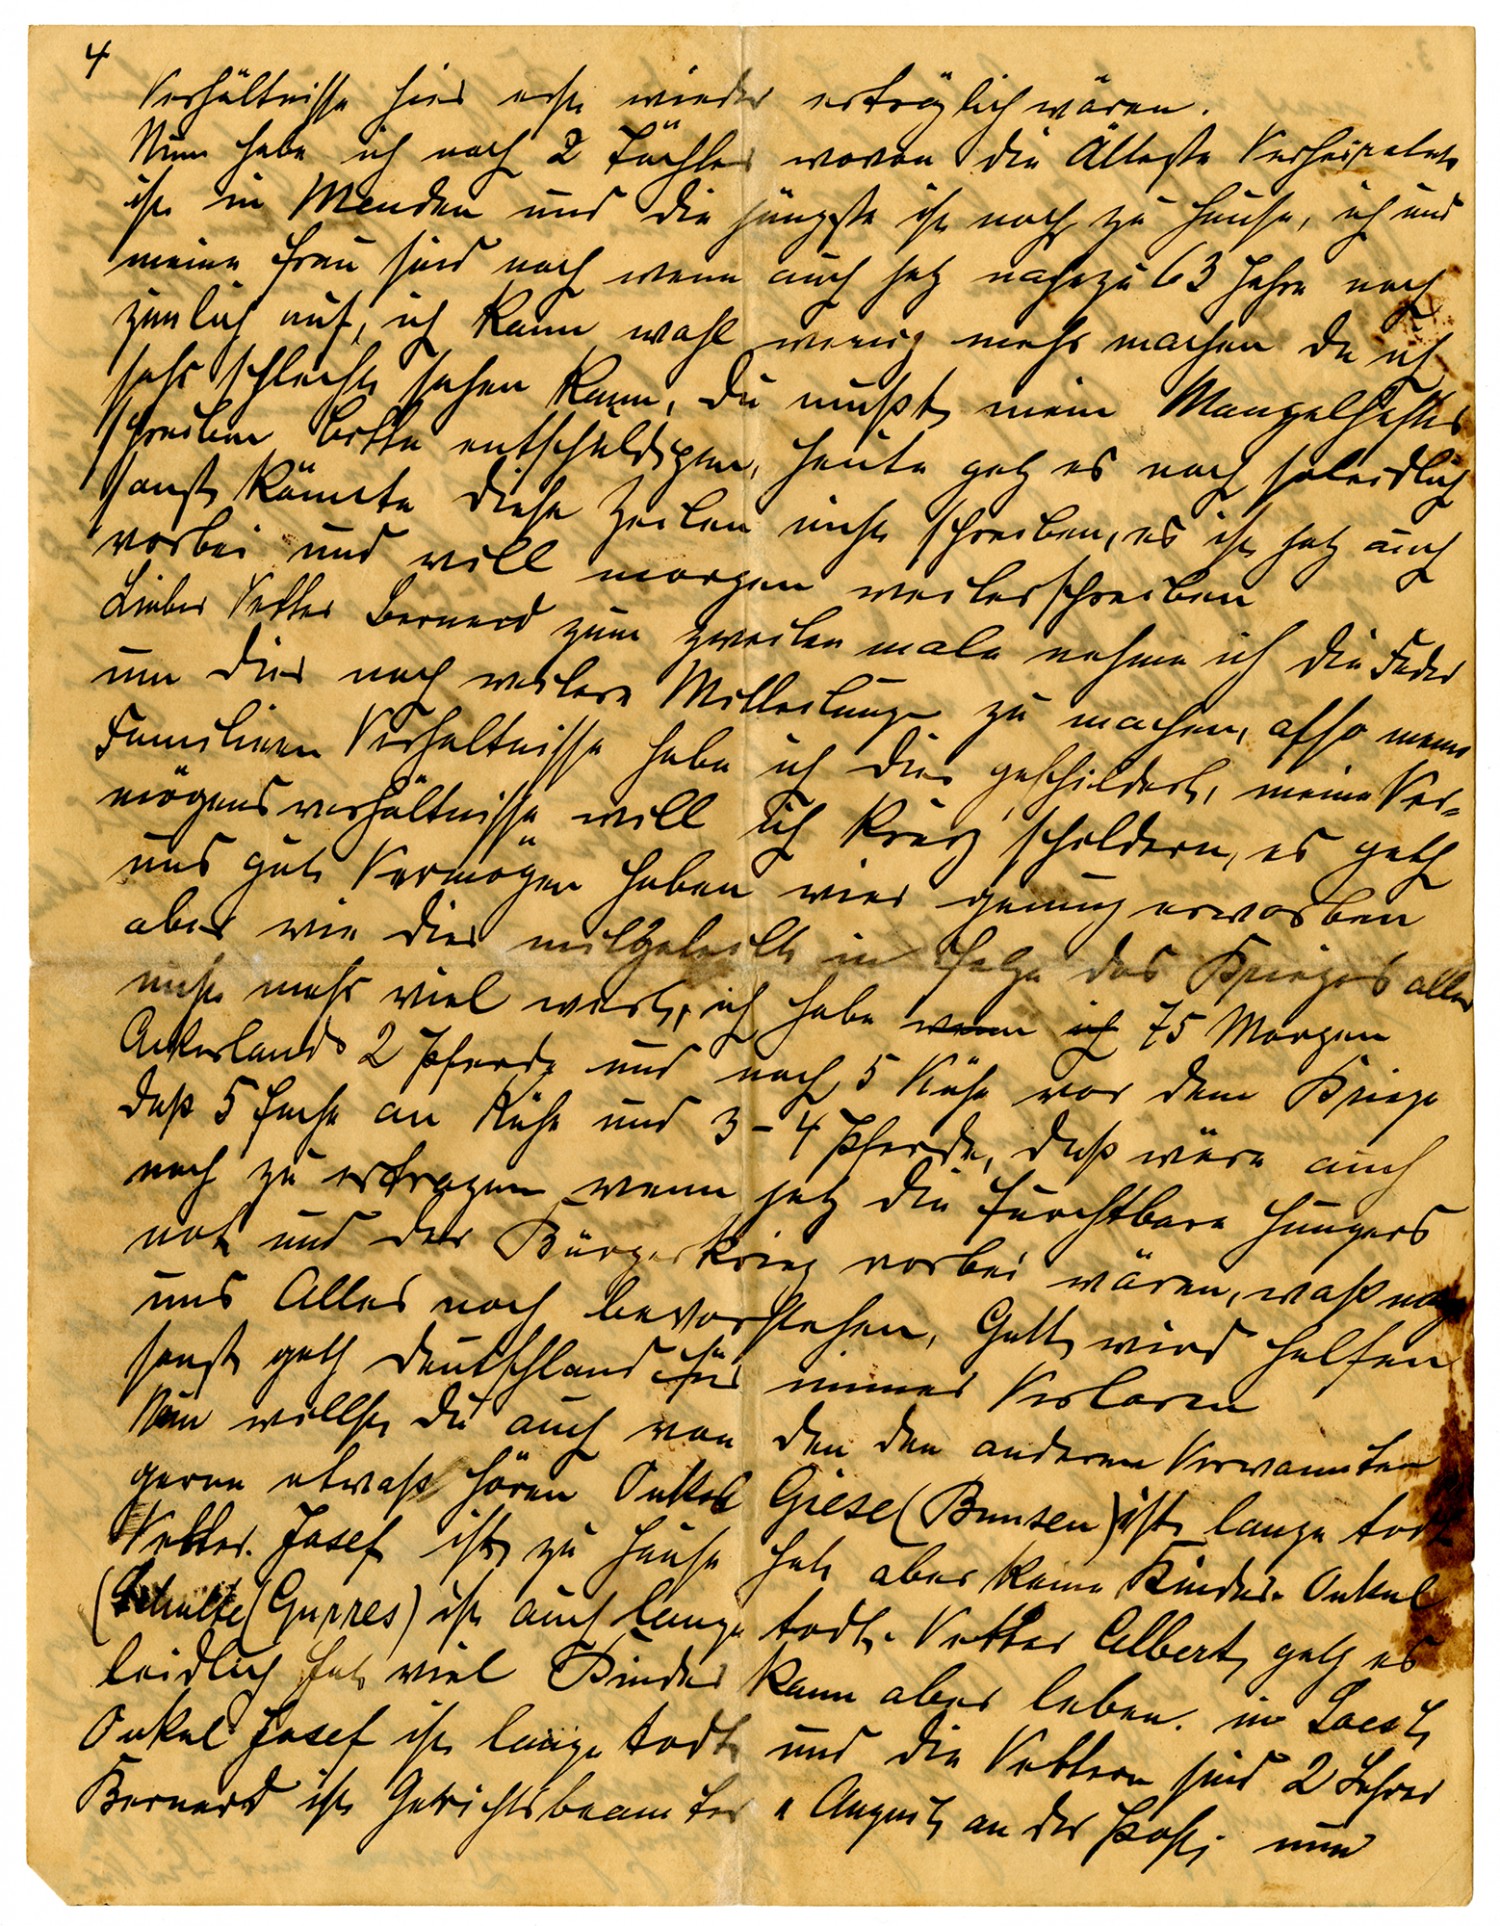 4
Verhältnisse hier erst wieder erträglich wären.
Nun habe ich noch 2 Töchter wovon die Älteste Verheiratet
ist in Menden und die jüngste ist noch zu Hause, ich und
meine Frau sind noch wenn auch jetz nahezu 63 Jahre noch
zimlich auf, ich kann wohl wenig mehr machen da ich
sehr schlecht sehen kann, Du mußt mein Mangelhaftes
schreiben bitte entschuldigen, heute geht es noch soleidlich
sonst könnte diese Zeilen nicht schreiben, es ist jetz auch
vorbei und will morgen weiterschreiben
Lieber Vetter Bernard zum zweiten male nehme ich die Feder
um Dier noch weitere Mitteilunge zu machen, also meine
Familieen Verhaltnisse habe ich Dier geschildert, meine Ver-
mögensverhältnisse will ich kurz schildern, es geth
uns gut Vermögen haben wier genug erworben
aber wie Dier mitgeteilt in Folge des Krieges alles
nicht mehr viel wert, ich habe wenn ich 75 Morgen
Ackerland 2 Pferde und noch 5 Kühe vor dem Kriege
daß 5 fache an Kühe und 3-4 Pferde, daß wäre auch
noch zu ertragen wenn jetz die furchtbare Hungers
not und der Bürgerkrieg vorbei wären, waß mag
uns Alles noch bevorstehen, Gott wird helfen
sonst geth Deutschland für immer Verloren
Nun willst Du auch von den den anderen Verwannten
gerne etwaß hören Onkel Giese (Bunsen) ist lange todt
Vetter Josef ist zu Hause hat aber keine Kinder. Onkel
(Schulte (Gurres) ist auch lange todt. Vetter Albert geth es
leidlich hat viel Kinder kann aber leben. in Soest
Onkel Josef ist lange todt und die Vettern sind 2 Lehrer
Bernard ist Gerichtsbeamter u August an der Post, nun